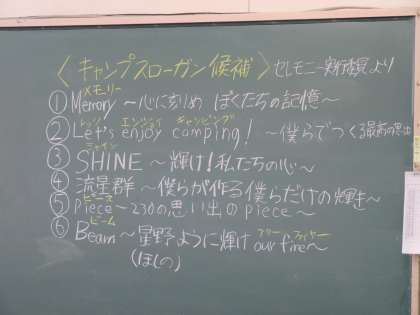 〈キャンプスローガン候補〉セレモニー実行委員より
メモリー
① Memory ～心に刻め ぼくたちの記憶～
レッツ エンジョイ キャンピング
② Let's enjoy camping! ～僕らでつくる最高の思出
シャイン
③ SHINE ～輝け!私たちの心～
④ 流星群 ～僕らが作る僕らだけの輝き～
ピース
⑤ Piece ～230の思い出のpiece～
ビーム アワー ファイヤー
⑥ Beam ～星野ように輝け our fire～
(ほしの)